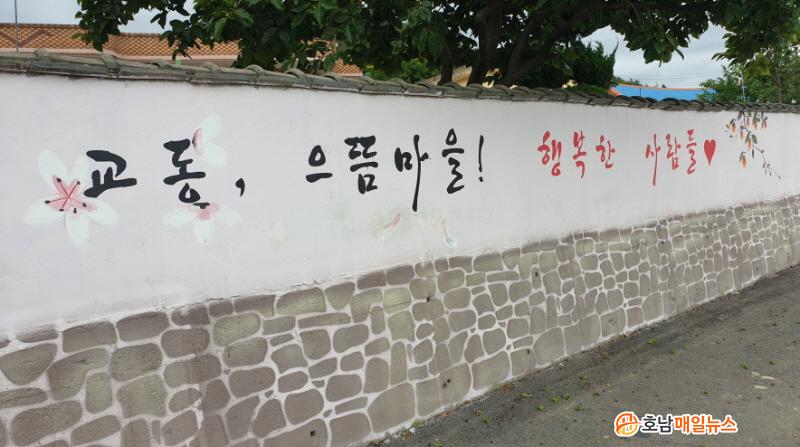 교동, 으뜸마을! 행복한 사람들♥
호남매일뉴스